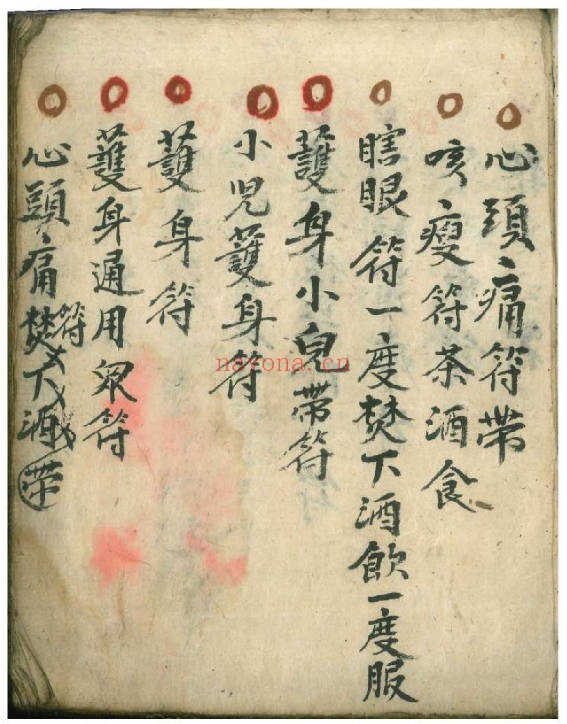 心頭痛符帶
咳瘦符茶酒食
瞎眼符一度焚下酒飲一度服
護身小兒帶符
小児護身符
護身符
護身通用眾符
心頭痛符焚下酒帶
nayona.cn